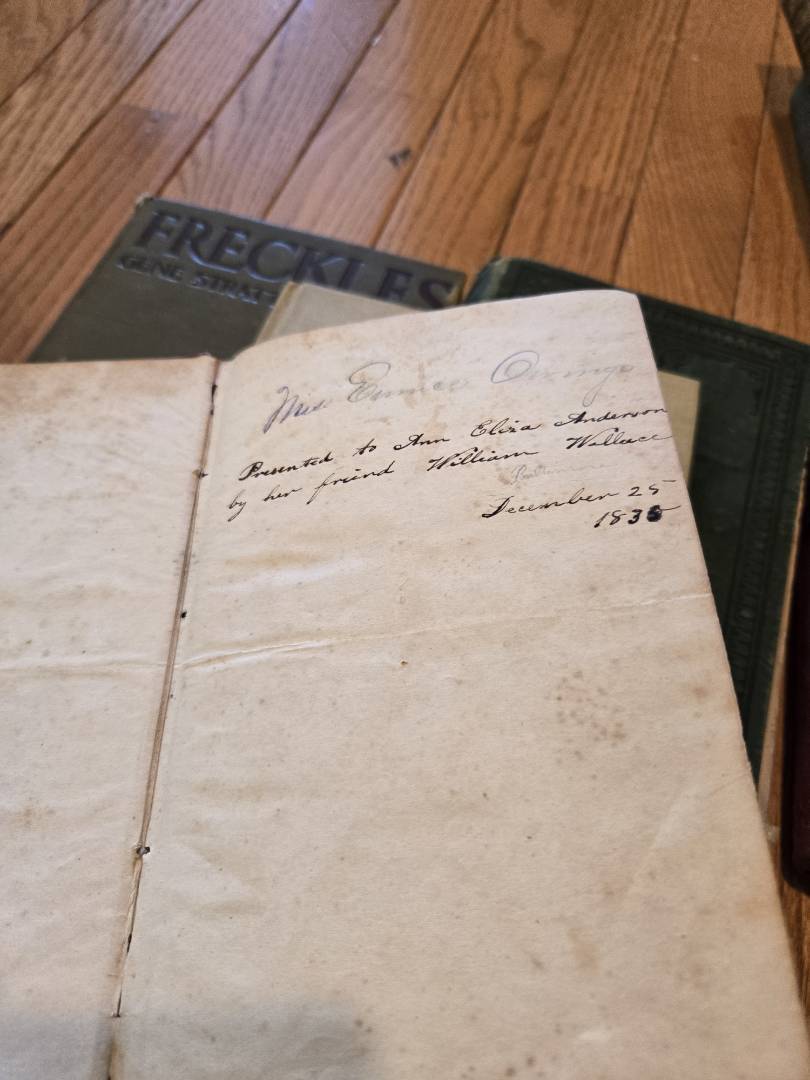 FRECKLES
GENE STRAT
Miss Eunice Owings
Presented to Ann Eliza Anderson
by her friend William Wallace
December 25
183